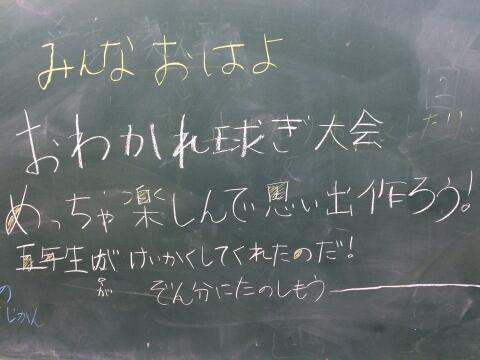 みんなおはよ
おわかれ球ぎ大会
めっちゃ楽しんで思い出作ろう!
五年生がけいかくしてくれたのだ!
ぞん分にたのしもう
の
じかん